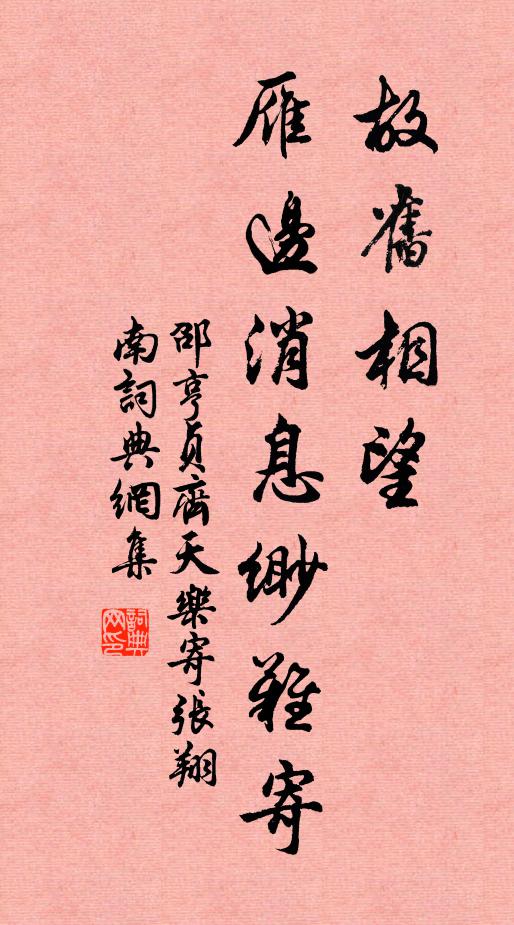 故舊相望
雁邊消息緲難寄
邵亨貞齊天樂寄張翔
南詞典網集
詞典網印